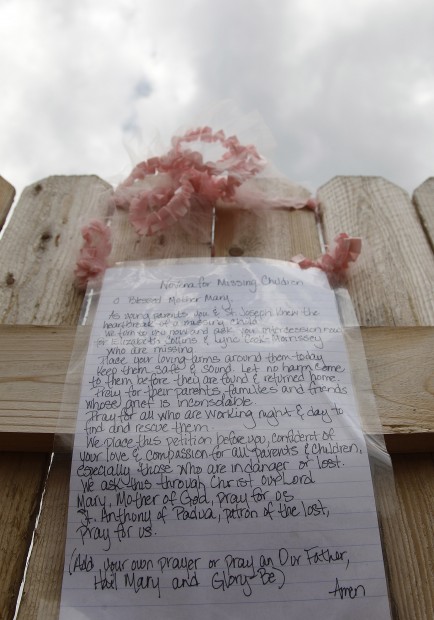 Novena for Missing Children
O Blessed Mother Mary,
As young parents you & St Joseph knew the
heartbreak of a missing child.
We turn to you now and ask your intercession now
for Elizabeth Collins & Lyric Cook-Morrissey
who are missing.
Place your loving arms around them today
keep them safe & sound. Let no harm come
to them before they are found & returned home.
Pray for their parents, families and friends
whose grief is inconsolable.
Pray for all who are working night & day to
find and rescue them.
We place this petition before you, confident of
your love & compassion for all parents & children,
especially those who are in danger or lost.
We ask this through Christ our Lord
Mary, Mother of God, pray for us
St. Anthony of Padua, patron of the lost,
pray for us.
(Add your own prayer or pray an Our Father,
Hail Mary and Glory Be)
Amen